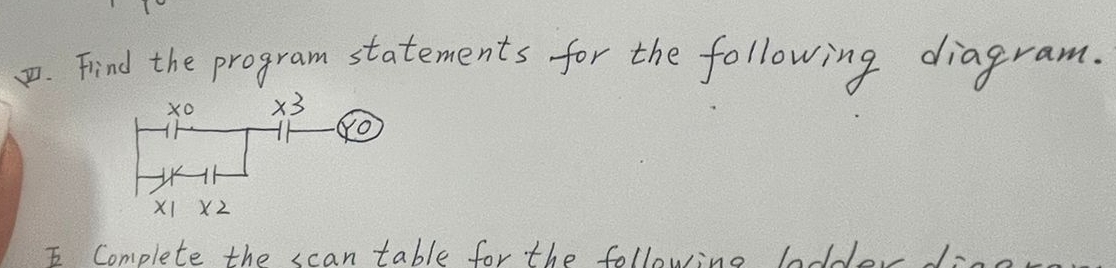 VI. Find the program statements for the following diagram.
X0 X3
Y0
X1 X2
Complete the scan table for the following ladder diagram